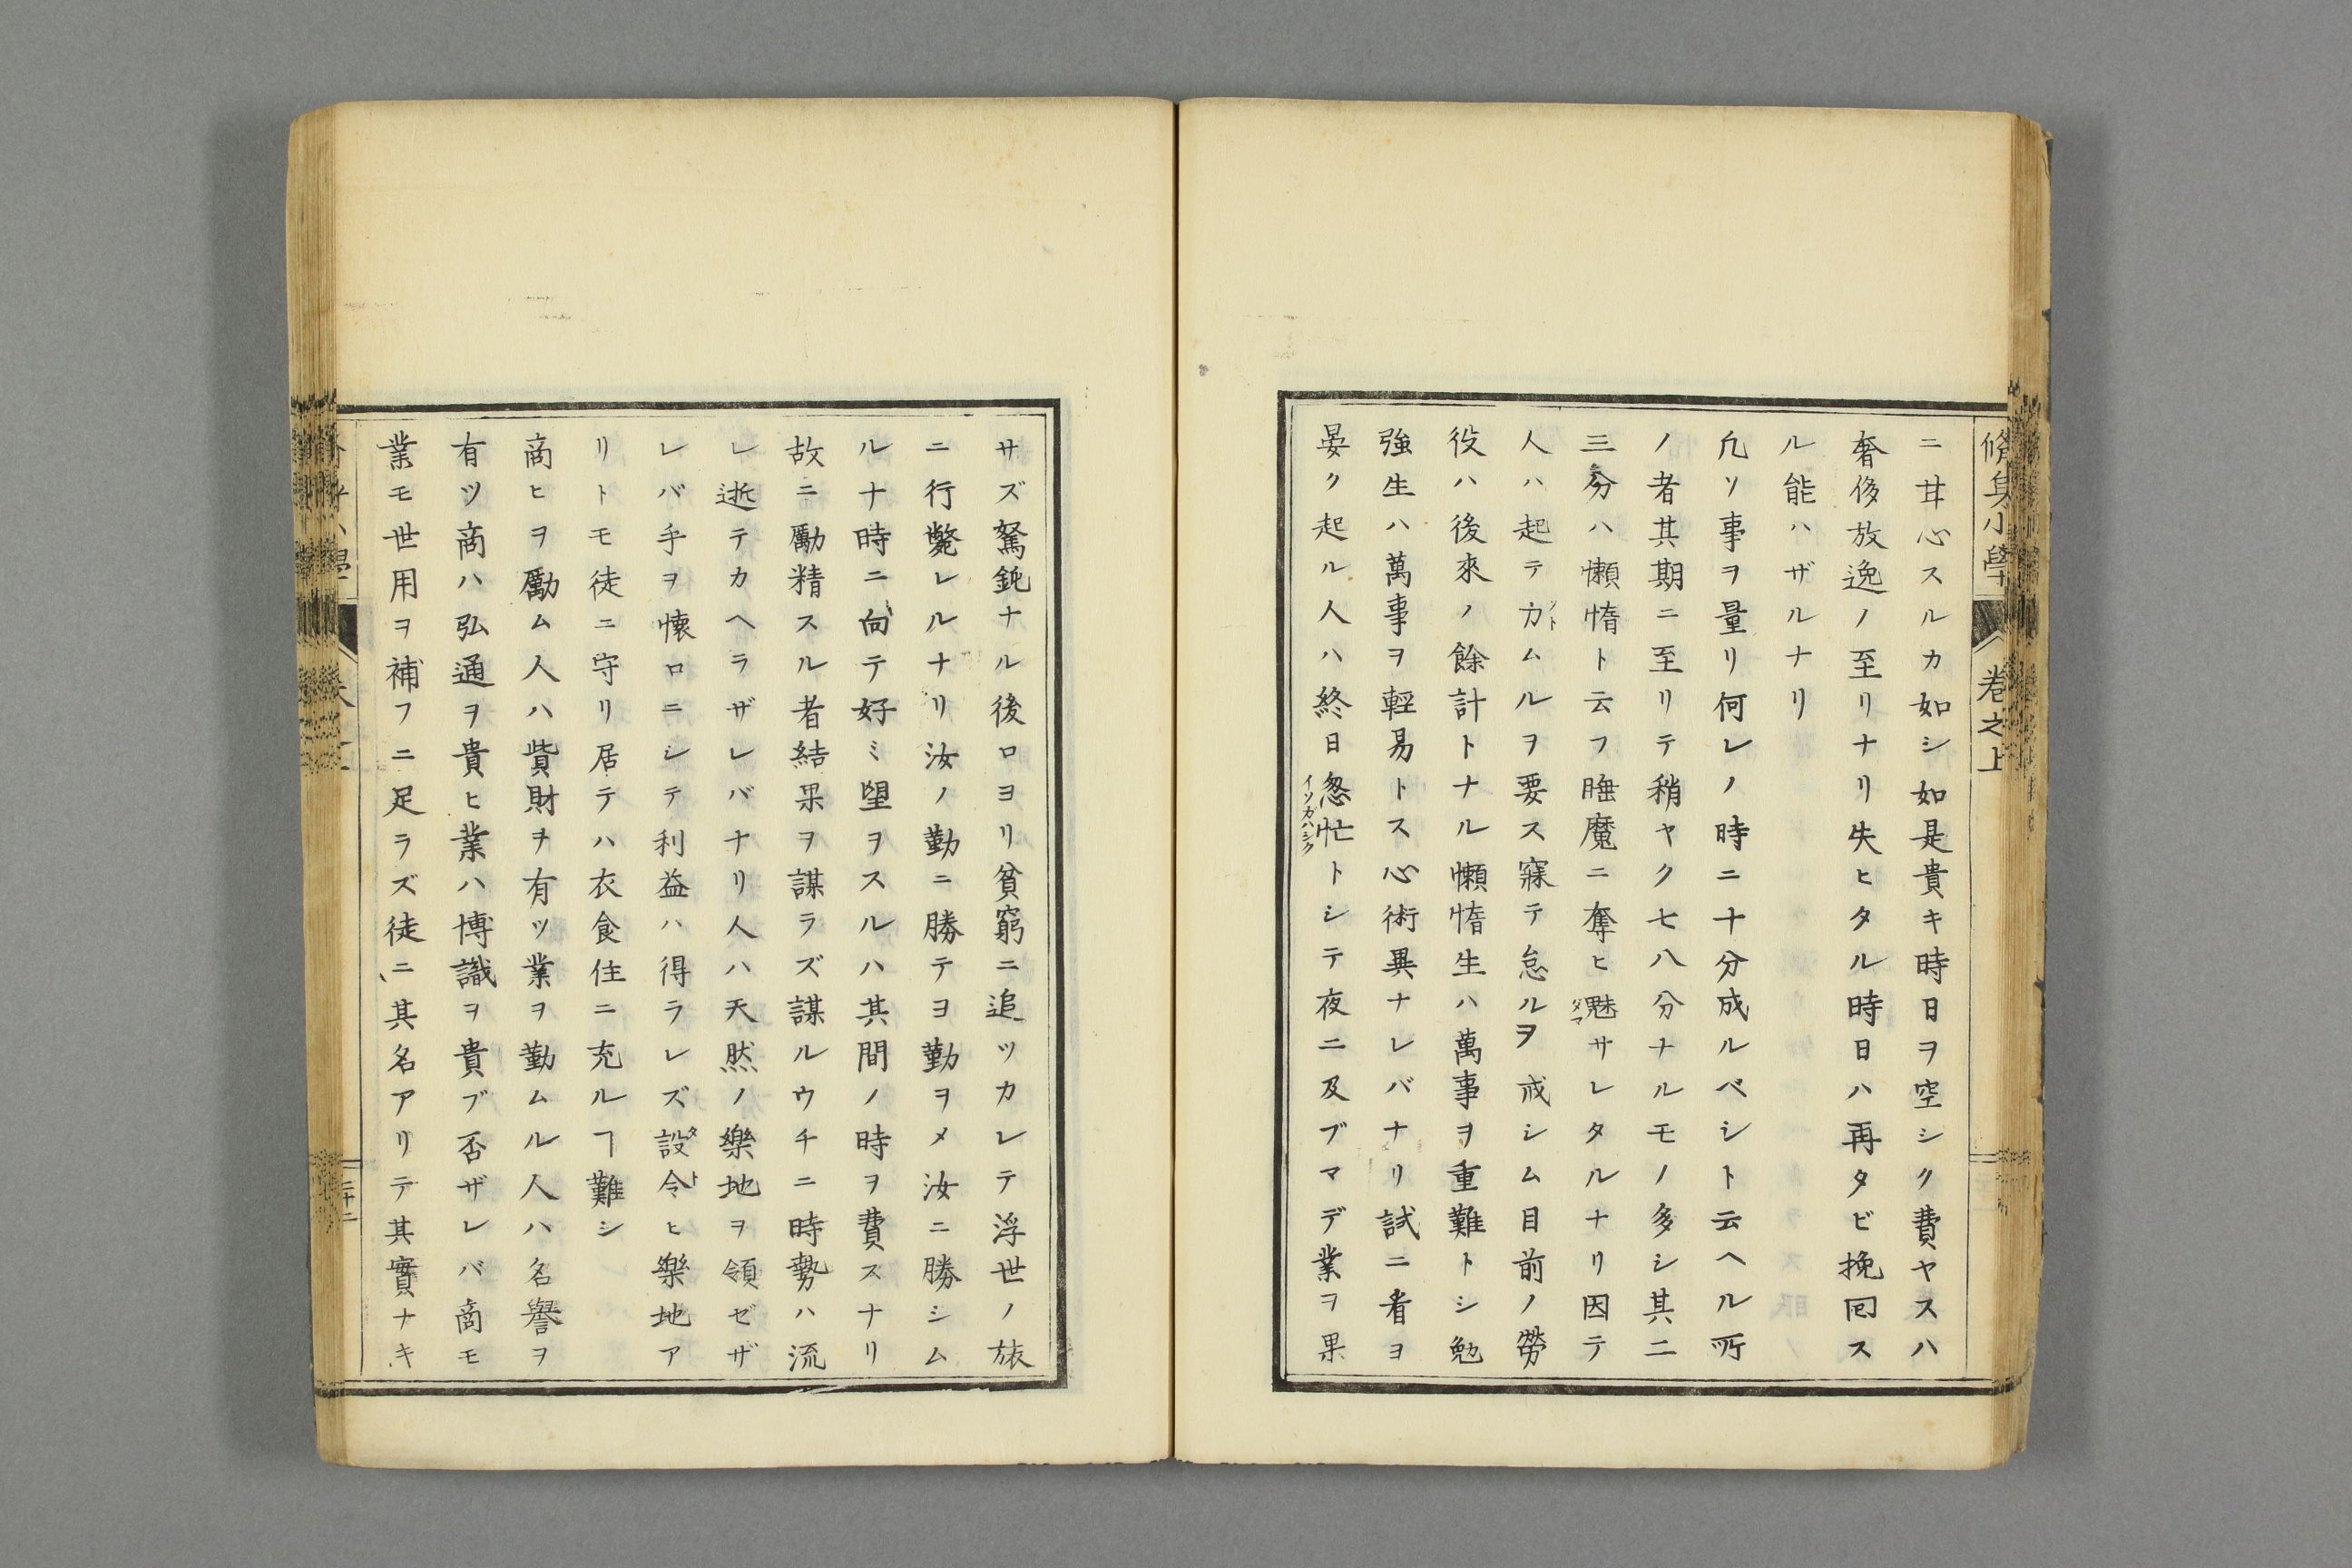 脩身小學
卷之上
ニ甘心スルカ如シ如是貴キ時日ヲ空シク費ヤスハ
奢侈放逸ノ至リナリ失ヒタル時日ハ再タビ挽回ス
ル能ハザルナリ
凡ソ事ヲ量リ何レノ時ニ十分成ルベシト云ヘル所
ノ者其期ニ至リテ稍ヤク七八分ナルモノ多シ其二
三分ハ懶惰ト云フ睡魔ニ奪ヒ魅サレタルナリ因テ
人ハ起テ力ムルヲ要ス寐テ怠ルヲ戒シム目前ノ勞
役ハ後來ノ餘計トナル懶惰生ハ萬事ヲ重難トシ勉
強生ハ萬事ヲ輕易トス心術異ナレバナリ試ニ看ヨ
晏ク起ル人ハ終日怱忙トシテ夜ニ及ブマデ業ヲ果
サズ駑鈍ナル後ロヨリ貧窮ニ追ツカレテ浮世ノ旅
ニ行斃レルナリ汝ノ勤ニ勝テヨ勤ヲメ汝ニ勝シム
ルナ時ニ向テ好ミ望ヲスルハ其間ノ時ヲ費スナリ
故ニ勵精スル者結果ヲ謀ラズ謀ルウチニ時勢ハ流
レ逝テカヘラザレバナリ人ハ天然ノ樂地ヲ領ゼザ
レバ手ヲ懷ロニシテ利益ハ得ラレズ設令ヒ樂地ア
リトモ徒ニ守リ居テハ衣食住ニ充ルヿ難シ
商ヒヲ勵ム人ハ貲財ヲ有ツ業ヲ勤ムル人ハ名譽ヲ
有ツ商ハ弘通ヲ貴ヒ業ハ博識ヲ貴ブ否ザレバ商モ
業モ世用ヲ補フニ足ラズ徒ニ其名アリテ其實ナキ
二十二